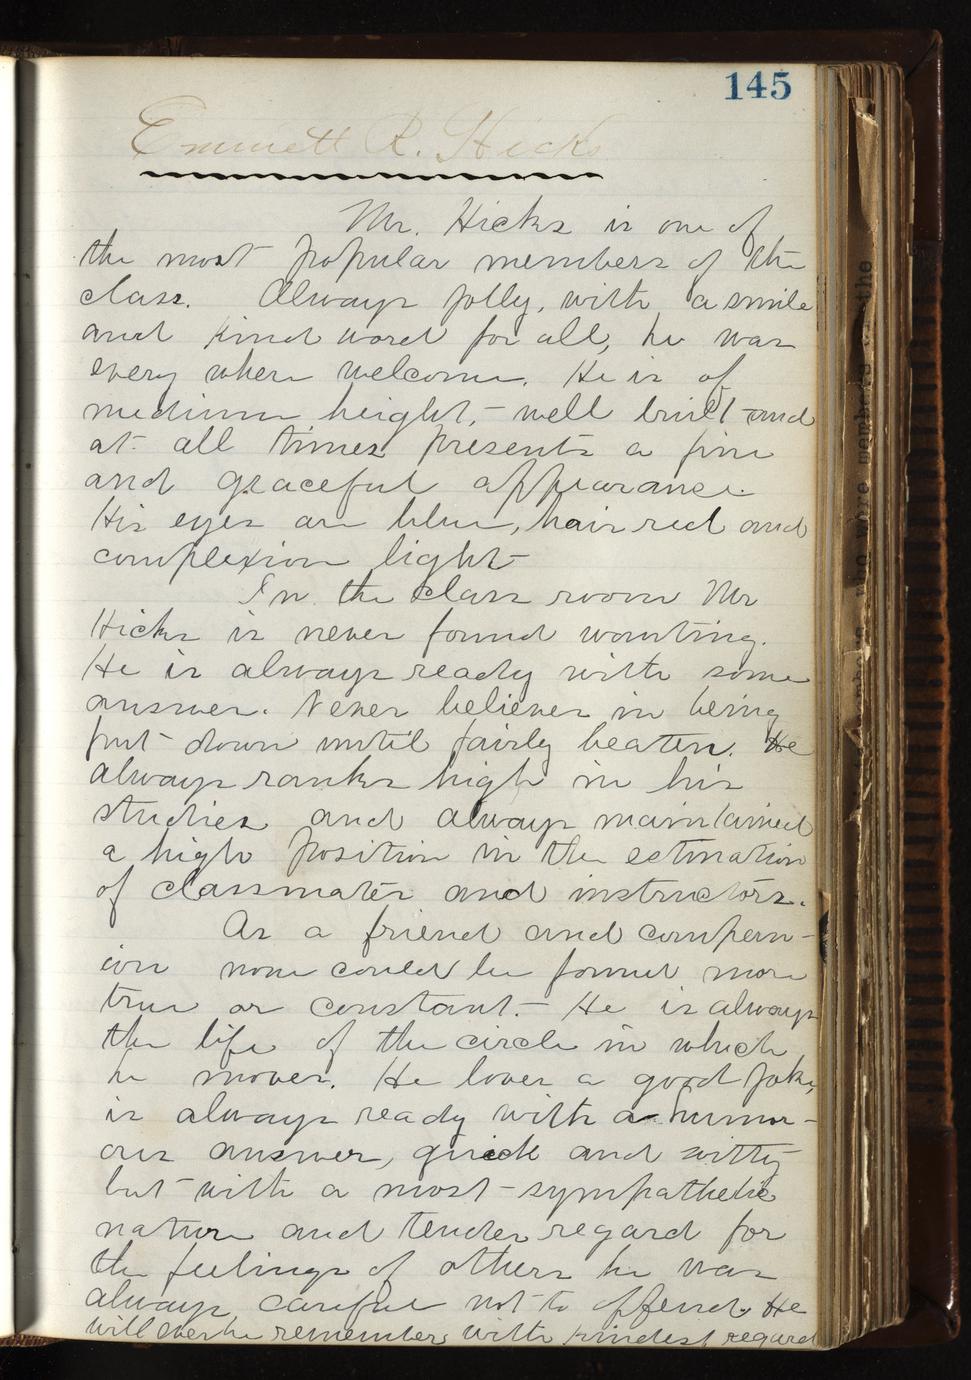 145
Emmett R. Hicks
Mr. Hicks is one of
the most popular members of the
class. Always jolly, with a smile
and kind word for all, he was
every where welcome. He is of
medium height, - well built and
at all times presents a fine
and graceful appearance.
His eyes are blue, hair red and
complexion light
In the class room Mr
Hicks is never found wanting.
He is always ready with some
answer. Never believes in being
put down until fairly beaten. He
always ranks high in his
studies and always maintained
a high position in the estmation
of classmates and instructors.
As a friend and compern-
ion none could be found more
true or constant. - He is always
the life of the circle in which
he moves. He loves a good joke,
is always ready with a humor-
ous answer, quick and witty
but with a most sympathetic
nature and tender regard for
the feelings of others he was
always careful not to offend. He
will ever be remembers with kindest regard
who were members the